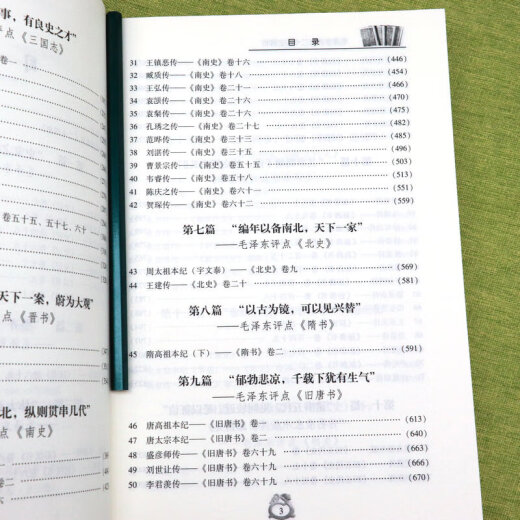 事，有良史之才”
评点《三国志》
卷一
卷五十五、五十七、六十
天下一案，蔚为大观”
点《晋书》
北，纵则贯串几代”
点《南史》
目 录
31 王镇恶传——《南史》卷十六 (446)
32 臧质传——《南史》卷十八 (454)
33 王弘传——《南史》卷二十一 (466)
34 袁颢传——《南史》卷二十六 (470)
35 袁粲传——《南史》卷二十六 (475)
36 孔琇之传——《南史》卷二十七 (482)
37 范晔传——《南史》卷三十三 (485)
38 刘湛传——《南史》卷三十五 (496)
39 曹景宗传——《南史》卷五十五 (503)
40 韦睿传——《南史》卷五十八 (513)
41 陈庆之传——《南史》卷六十一 (551)
42 贺琛传——《南史》卷六十二 (559)
第七篇 “编年以备南北，天下一家”
——毛泽东评点《北史》
43 周太祖本纪（宇文泰）——《北史》卷九 (569)
44 王建传——《北史》卷二十 (581)
第八篇 “以古为镜，可以见兴替”
——毛泽东评点《隋书》
45 隋高祖本纪（下）——《隋书》卷二 (591)
第九篇 “郁勃悲凉，千载下犹有生气”
——毛泽东评点《旧唐书》
46 唐高祖本纪——《旧唐书》卷一 (613)
47 唐太宗本纪——《旧唐书》卷二 (641)
48 盛彦师传——《旧唐书》卷六十九 (663)
49 刘世让传——《旧唐书》卷六十九 (666)
50 李君羡传——《旧唐书》卷六十九 (670)
3